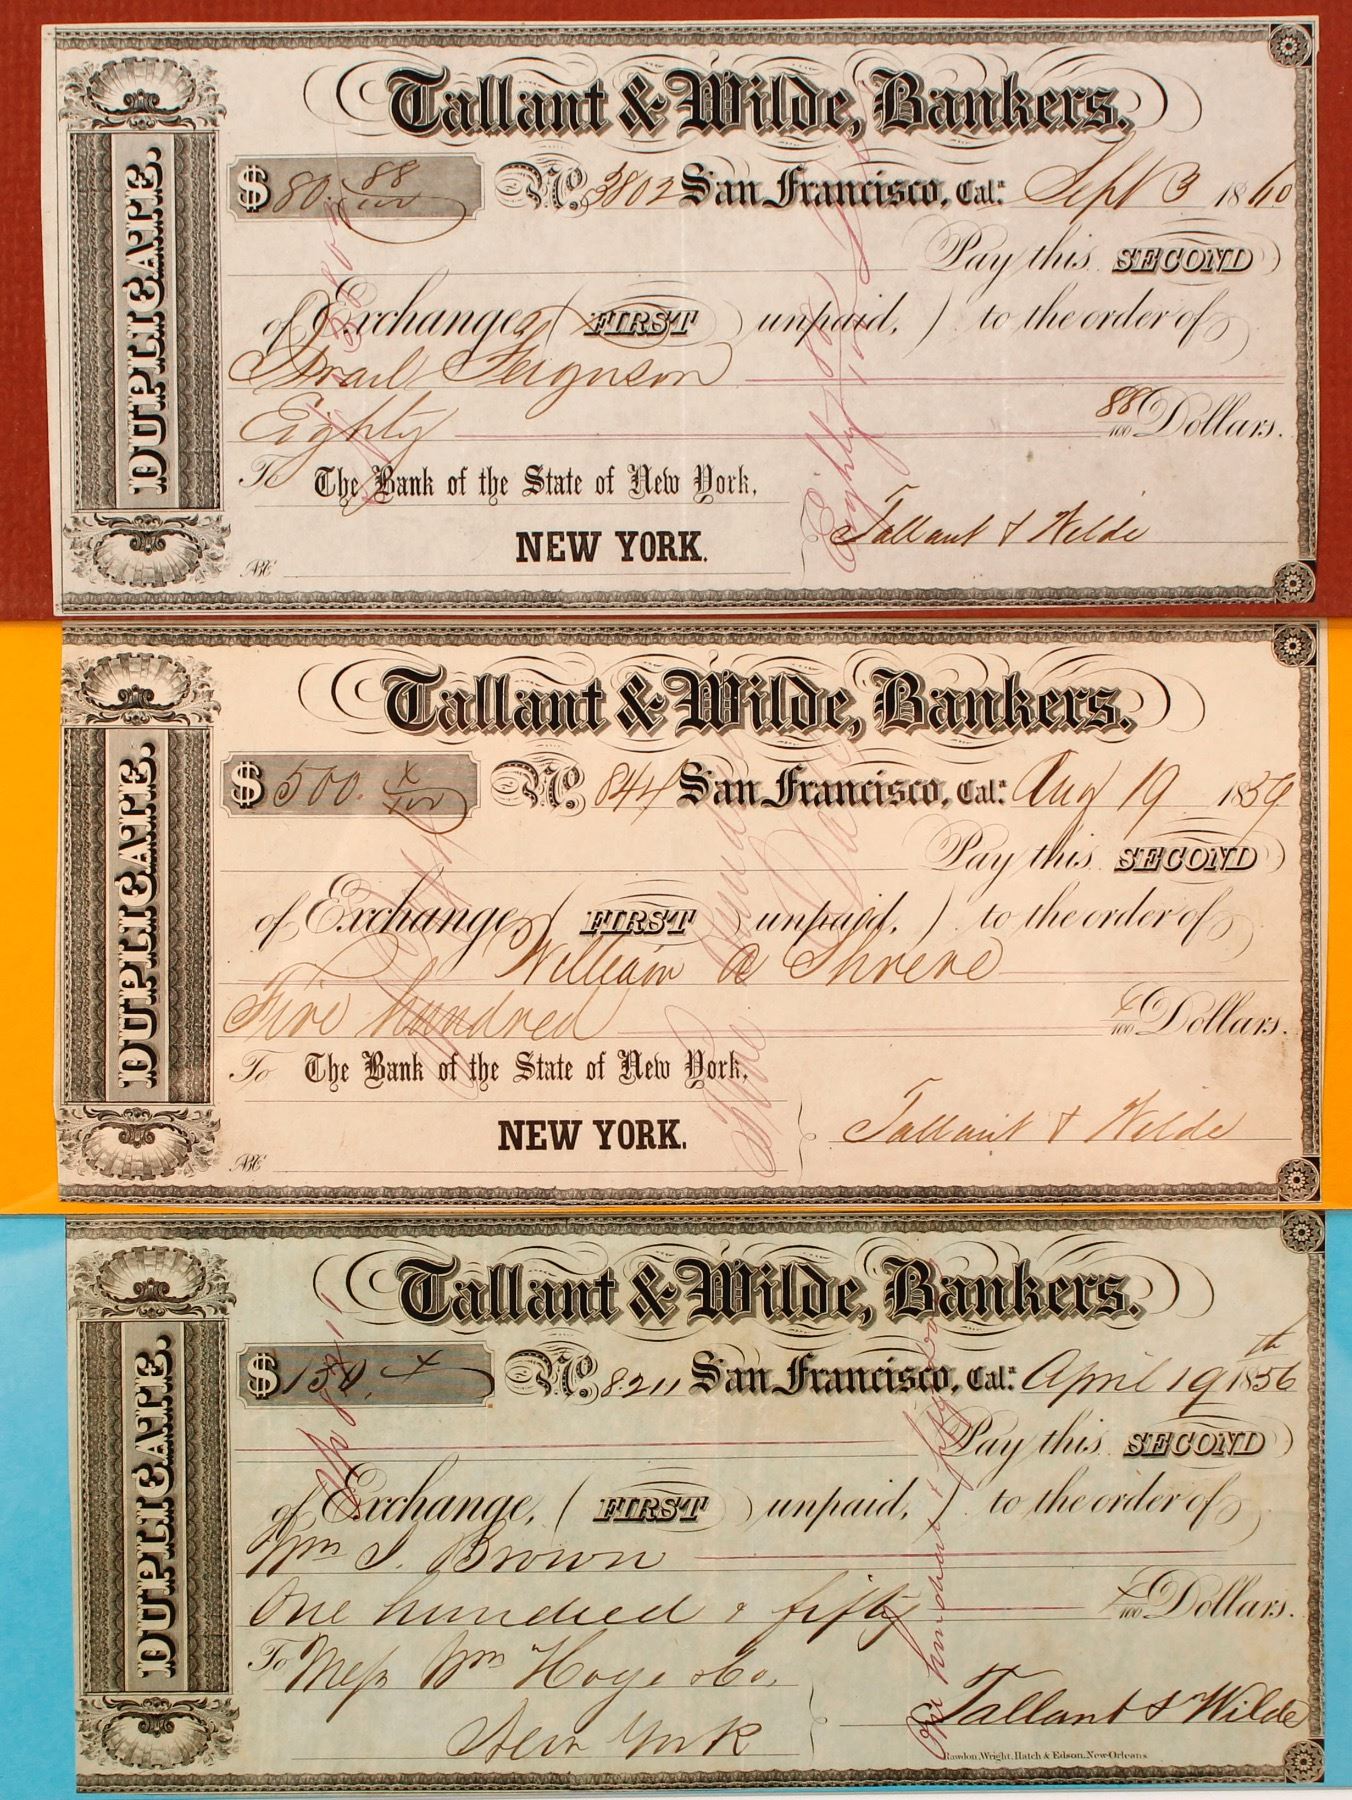 Tallant & Wilde, Bankers.
DUPLICATE.
$ 80. 88/100 No. 3802 San Francisco, Cal: Sept 3 1860
Pay this SECOND
of Exchange, ( FIRST unpaid, ) to the order of
Israel Ferguson
Eighty 88/100 Dollars.
To The Bank of the State of New York,
NEW YORK.
Tallant & Wilde
Tallant & Wilde, Bankers.
DUPLICATE.
$ 500. x/100 No. 844 San Francisco, Cal: Aug 19 1859
Pay this SECOND
of Exchange, ( FIRST unpaid, ) to the order of
William A Shreve
Five hundred x/100 Dollars.
To The Bank of the State of New York,
NEW YORK.
Tallant & Wilde
Tallant & Wilde, Bankers.
DUPLICATE.
$ 150. x No. 8211 San Francisco, Cal: April 19th 1856
Pay this SECOND
of Exchange, ( FIRST unpaid, ) to the order of
Wm J. Brown
One hundred & fifty x/100 Dollars.
To Mess Wm Hoge & Co.
New York
Tallant & Wilde
Rawdon, Wright, Hatch & Edson, New-Orleans